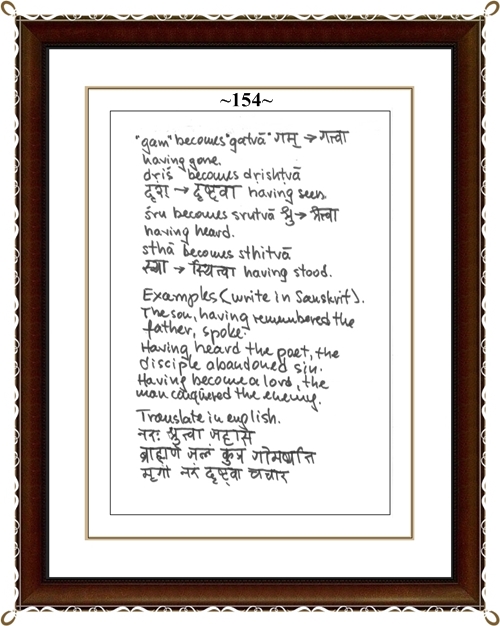 ~154~
"gam" becomes "gatvā" गम् → गत्वा
having gone.
driś becomes drishtvā
दृश → दृष्ट्वा having seen.
śru becomes srutvā श्रु →
having heard.
sthā becomes sthitvā
स्था → स्थित्वा having stood.
Examples (write in Sanskrit).
The son, having remembered the
father, spoke.
Having heard the poet, the
disciple abandoned sin.
Having become a lord, the
man conquered the enemy.
Translate in english.
नरः श्रुत्वा जहास
जलं कुत्र
मृगो नरं दृष्ट्वा चचार